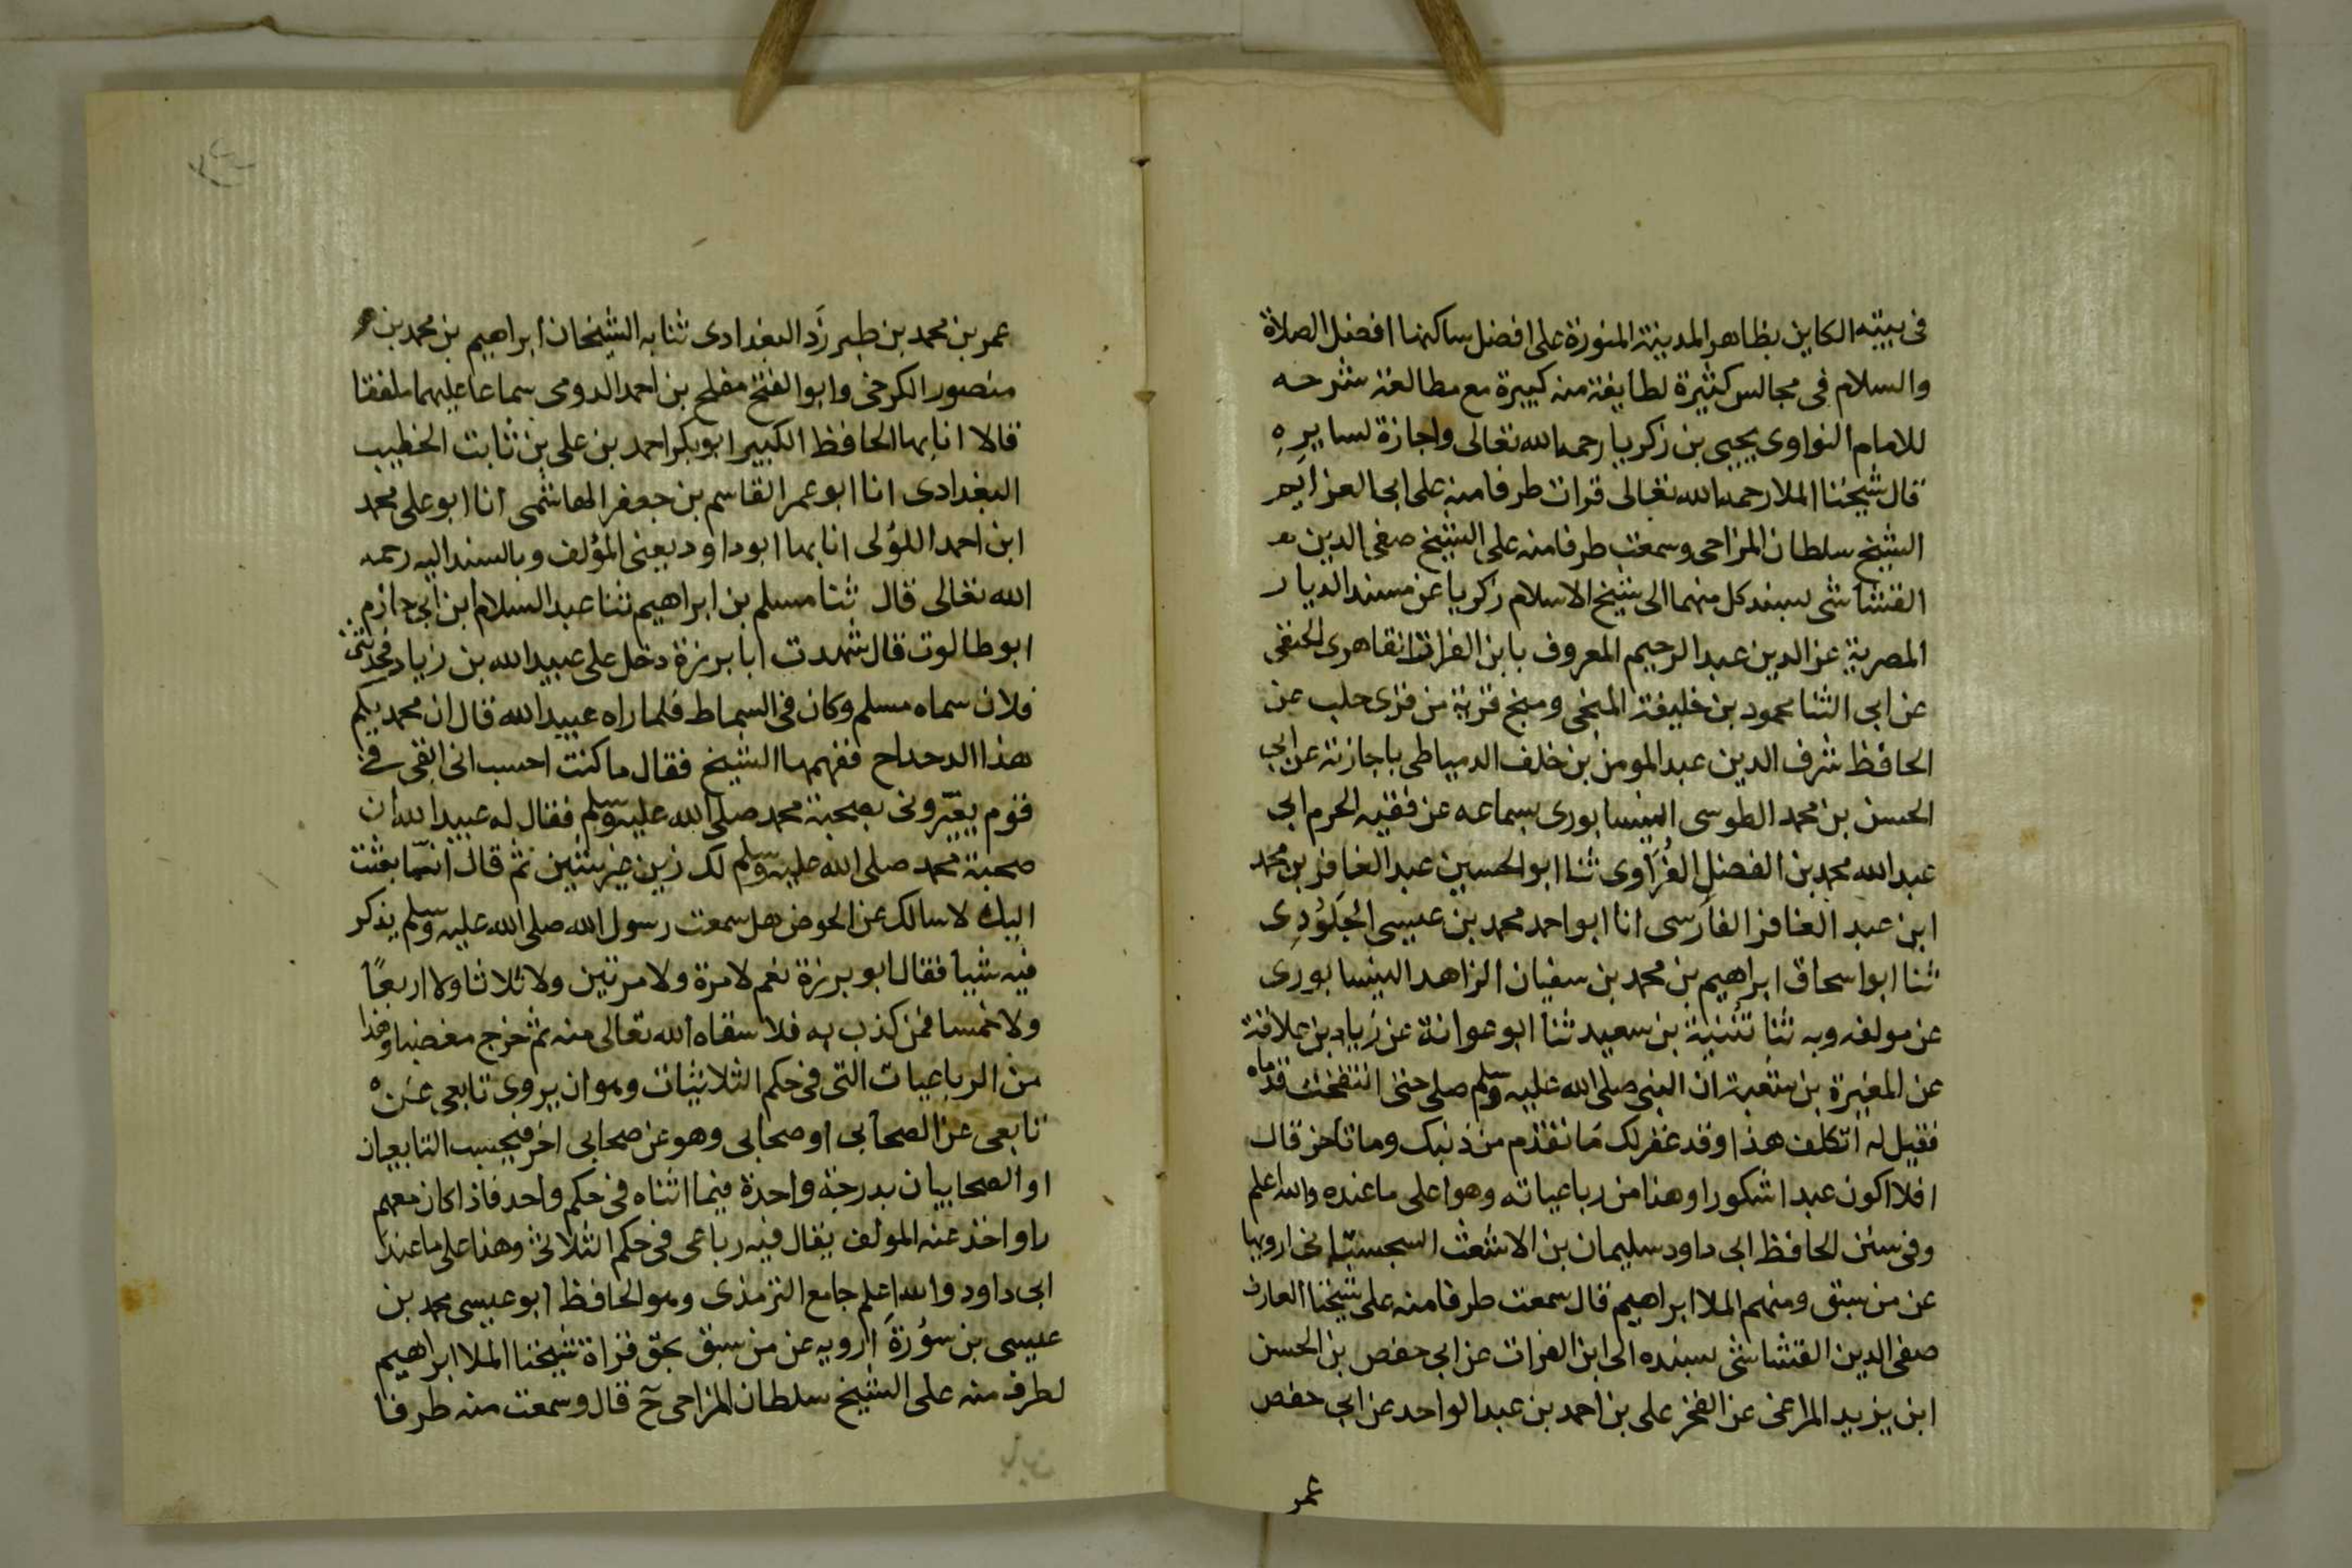 فى بيته الكاين بظاهر المدينة المنورة على افضل ساكنها افضل الصلاة
والسلام فى مجالس كثيرة لطايفة منه كبيرة مع مطالعة شرحه
للامام النواوى يحيى بن زكريا رحمه الله تعالى واجازة لسايره
قال شيخنا الملا رحمه الله تعالى قرات طرفا منه على ابى العزايم
الشيخ سلطان المزاحى وسمعت طرفا منه على الشيخ صفى الدين
القشاشى بسند كل منهما الى شيخ الاسلام زكريا عن مسند الديار
المصرية عز الدين عبد الرحيم المعروف بابن الفرات القاهرى الحنفى
عن ابى الثنا محمود بن خليفة المنبجى ومنبج قرية من قرى حلب عن
الحافظ شرف الدين عبد المومن بن خلف الدمياطى باجازته عن ابى
الحسن بن محمد الطوسى النيسابورى بسماعه عن فقيه الحرم ابى
عبد الله محمد بن الفضل الفُرَاوى ثنا ابو الحسين عبد الغافر بن محمد
ابن عبد الغافر الفارسى انا ابو احمد محمد بن عيسى الجَلُودِى
ثنا ابو اسحاق ابراهيم بن محمد بن سفيان الزاهد النيسابورى
عن مولفه وبه ثنا قتيبة بن سعيد ثنا ابو عوانة عن زياد بن علاقة
عن المغيرة بن شعبة ان النبى صلى الله عليه وسلم صلى حتى انتفخت قدماه
فقيل له اتكلف هذا وقد غفر لك ما تقدم من ذنبك وما تاخر قال
افلا اكون عبدا شكورا وهذا من رباعياته وهو اعلى ما عنده والله اعلم
وفى سنن الحافظ ابى داود سليمان بن الاشعث السجستانى ارويها
عن من سبق ومنهم الملا ابراهيم قال سمعت طرفا منه على شيخنا العارف
صفى الدين القشاشى بسنده الى ابن الفرات عن ابى حفص بن الحسن
ابن يزيد المراغى عن الفخر على بن احمد بن عبد الواحد عن ابى حفص
عمر
عمر بن محمد بن طبرزَد البغدادى ثنا به الشيخان ابراهيم بن محمد بن
منصور الكرخى وابو الفتح مفلح بن احمد الدومى سماعا عليهما ملفقا
قالا انا بها الحافظ الكبير ابو بكر احمد بن على بن ثابت الخطيب
البغدادى انا ابو عمر القاسم بن جعفر الهاشمى انا ابو على محمد
ابن احمد اللؤلى انا بها ابو داود يعنى المؤلف وبالسند اليه رحمه
الله تعالى قال ثنا مسلم بن ابراهيم ثنا عبد السلام ابن ابى حازم
ابو طالوت قال شهدت ابا برزة دخل على عبيد الله بن زياد فحدثنى
فلان سماه مسلم وكان فى السماط فلما راه عبيد الله قال ان محمديكم
هذا الدحداح ففهمها الشيخ فقال ما كنت احسب انى ابقى فى
قوم يعيّرونى بصحبة محمد صلى الله عليه وسلم فقال له عبيد الله ان
صحبة محمد صلى الله عليه وسلم لك زين غير شين ثم قال انما بعثت
اليك لاسالك عن الحوض هل سمعت رسول الله صلى الله عليه وسلم يذكر
فيه شيأ فقال ابو برزة نعم لا مرة ولا مرتين ولا ثلاثا ولا اربعًا
ولا خمسا فمن كذب به فلا سقاه الله تعالى منه ثم خرج مغضبا وهذا
من الرباعيات التى فى حكم الثلاثيات وهو ان يروى تابعى عن
تابعى عن الصحابى او صحابى وهو عن صحابى اخر فيحسب التابعيان
او الصحابيان بدرجة واحدة فيما اثناه فى حكم واحد فاذا كان معهم
راو اخذ عنه المولف يقال فيه رباعى فى حكم الثلاثى وهذا على ما عند
ابى داود والله اعلم جامع الترمذى وهو الحافظ ابو عيسى محمد بن
عيسى بن سوْرَة ارويه عن من سبق بحق قراة شيخنا الملا ابراهيم
لطرف منه على الشيخ سلطان المزاحى ح قال وسمعت منه طرفا